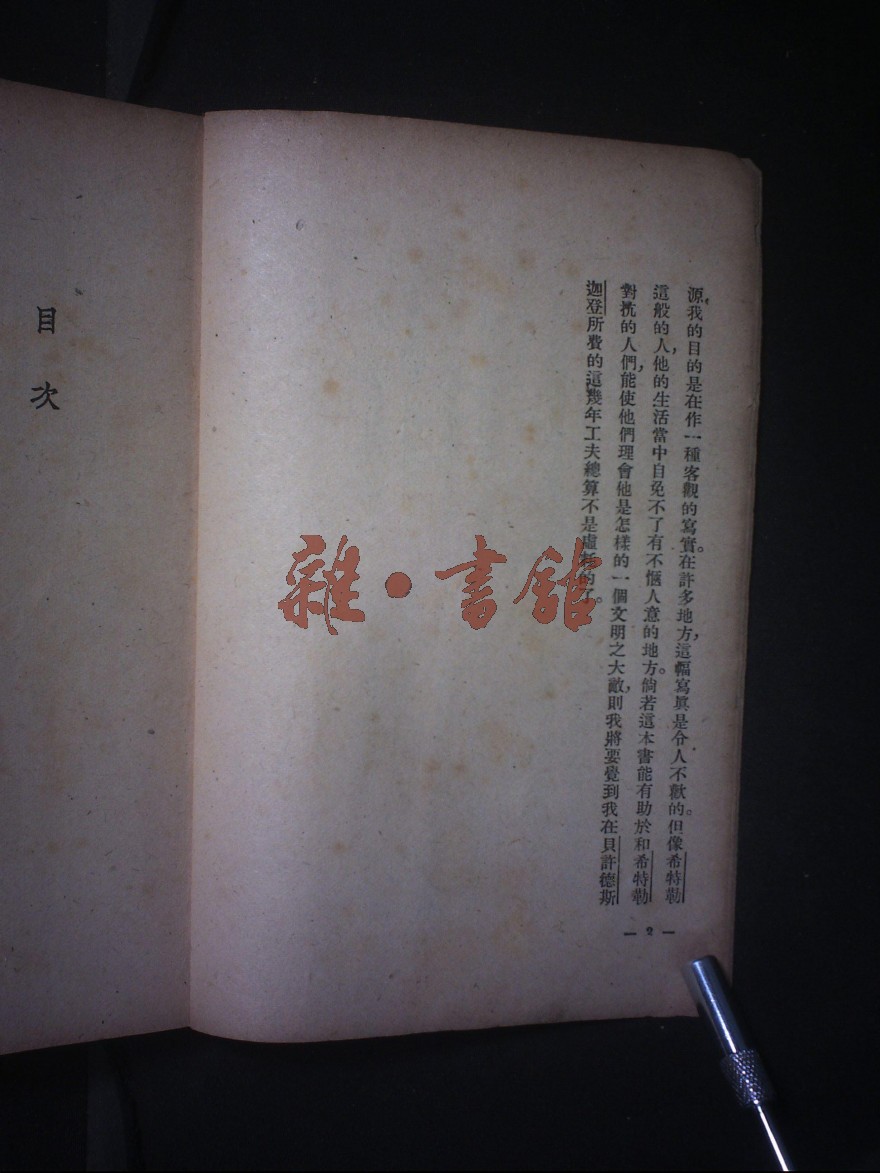 源。我的目的是在作一種客觀的寫實。在許多地方，這幅寫眞是令人不歡的。但像希特勒
這般的人，他的生活當中自免不了有不愜人意的地方。倘若這本書能有助於和希特勒
對抗的人們，能使他們理會他是怎樣的一個文明之大敵，則我將要覺到我在貝許德斯
迦登所費的這幾年工夫總算不是虛的了。
— 2 —
目次
雜·書館